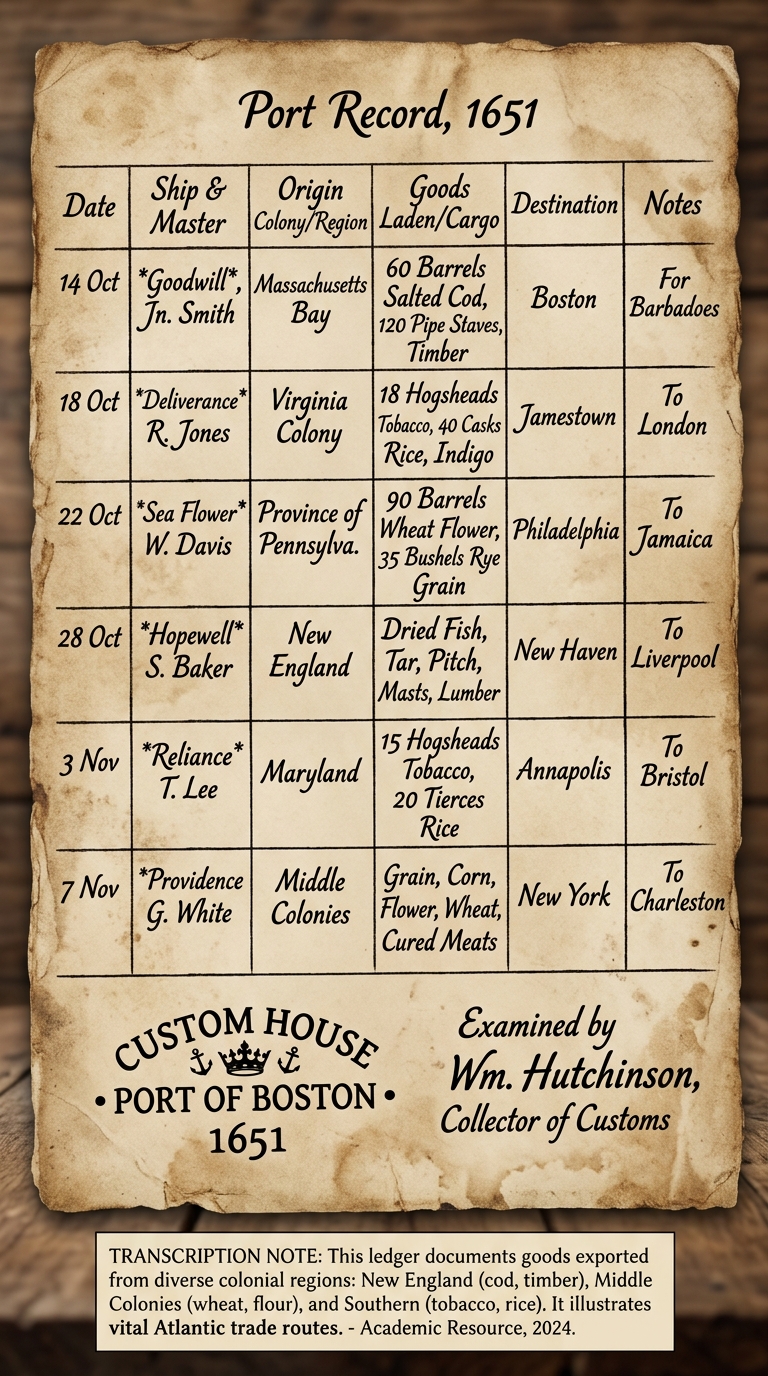 Port Record, 1651
Date
Ship &
Master
Origin
Colony/Region
Goods
Laden/Cargo
Destination
Notes
14 Oct
*Goodwill*,
Jn. Smith
Massachusetts
Bay
60 Barrels
Salted Cod,
120 Pipe Staves,
Timber
Boston
For
Barbadoes
18 Oct
*Deliverance*
R. Jones
Virginia
Colony
18 Hogsheads
Tobacco, 40 Casks
Rice, Indigo
Jamestown
To
London
22 Oct
*Sea Flower*
W. Davis
Province of
Pennsylva.
90 Barrels
Wheat Flower,
35 Bushels Rye
Grain
Philadelphia
To
Jamaica
28 Oct
*Hopewell*
S. Baker
New
England
Dried Fish,
Tar, Pitch,
Masts, Lumber
New Haven
To
Liverpool
3 Nov
*Reliance*
T. Lee
Maryland
15 Hogsheads
Tobacco,
20 Tierces
Rice
Annapolis
To
Bristol
7 Nov
*Providence
G. White
Middle
Colonies
Grain, Corn,
Flower, Wheat,
Cured Meats
New York
To
Charleston
CUSTOM HOUSE
• PORT OF BOSTON •
1651
Examined by
Wm. Hutchinson,
Collector of Customs
TRANSCRIPTION NOTE: This ledger documents goods exported
from diverse colonial regions: New England (cod, timber), Middle
Colonies (wheat, flour), and Southern (tobacco, rice). It illustrates
vital Atlantic trade routes. - Academic Resource, 2024.